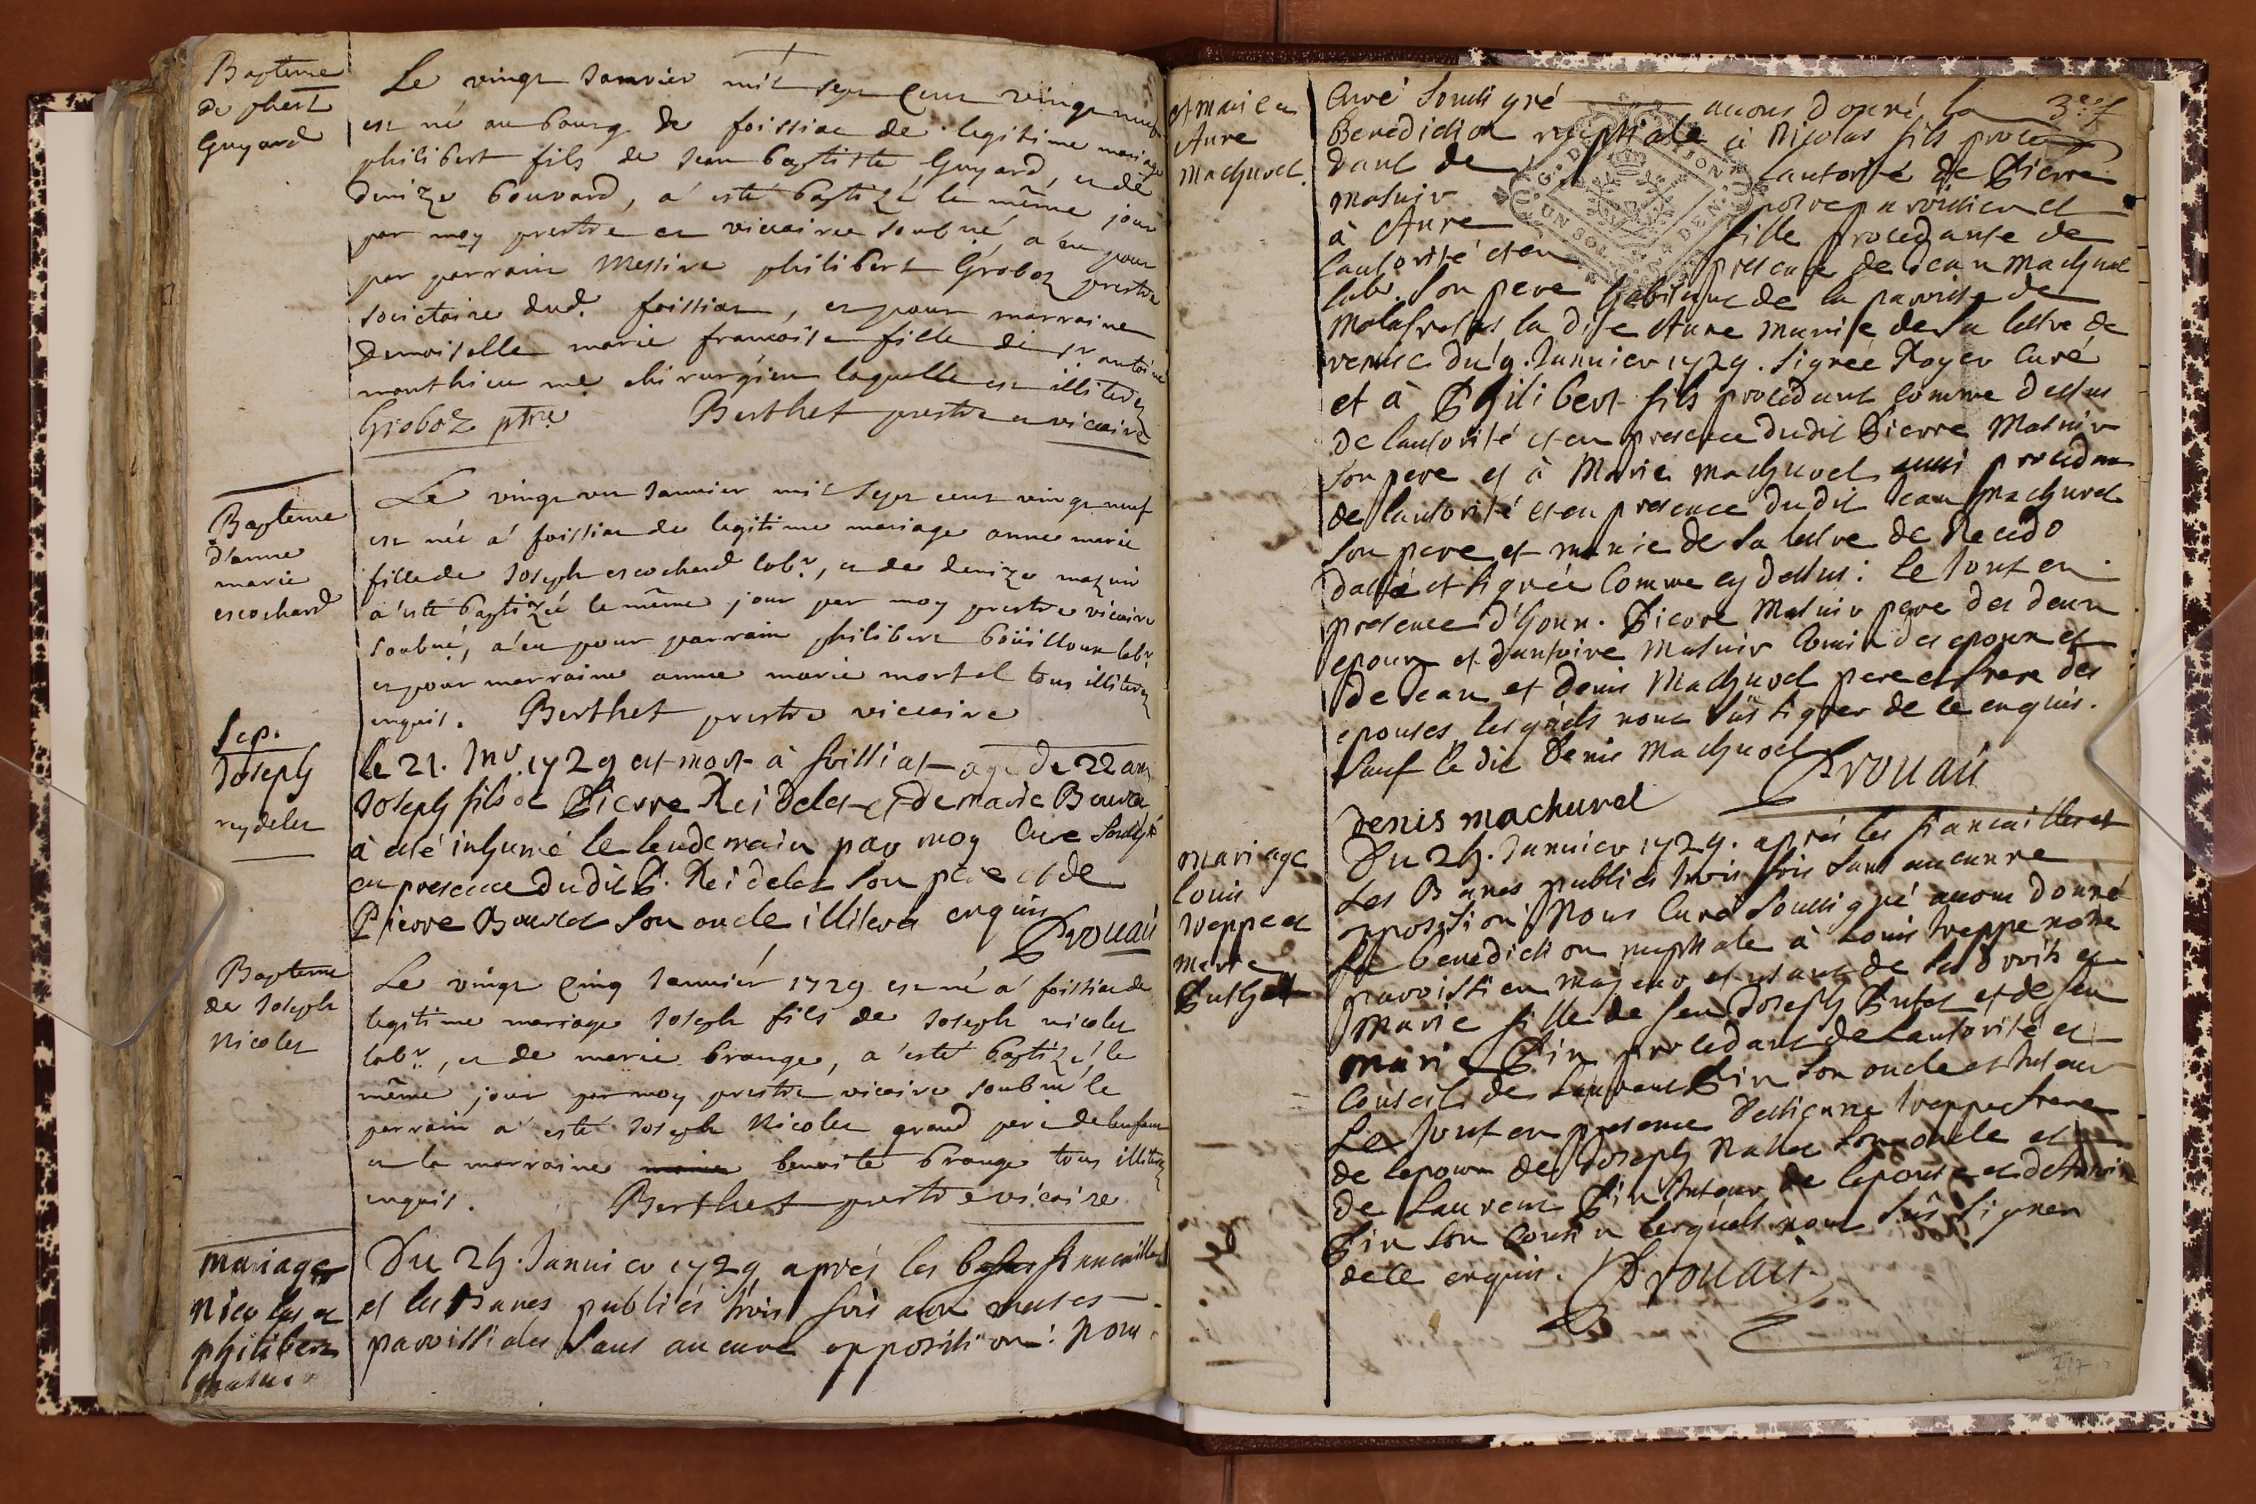 Bapteme
de phert
Guyard
Le vingt Janvier mil sept cent vingt neuf
est né au bourg de foissiac de legitime mariage
philibert fils de Jean baptiste Guyard, et de
denize bouvard, a esté baptizé le même jour
par moy prestre et viccaire soubné, a eu pour
par parrain Messire philibert Groboz prestre
societaire dud. foissiac, et pour marraine
demoiselle marie francoise fille de sr antoine
monthieu me chirurgien laquelle est illiterez
Groboz ptre Berthet prestre et viccaire
Bapteme
d'anne
marie
escochard
Le vingt un Janvier mil sept cent vingt neuf
est née a foissiac de legitime mariage anne marie
fille de Joseph escochard labr, et de denize mazuir
a esté baptizée le même jour par moy prestre vicaire
soubné, a eu pour parrain philibert boüilloux labr
et pour marraine anne marie mortel tous illiterez
enquis. Berthet prestre viccaire
Sep.
Joseph
reydelet
le 21. Jnv. 1729 est mort à foissiat agé de 22 ans
Joseph fils de Pierre Reidelet et de marie Bouvet
à eté inhumé le lendemain par moy Curé Soussigné
en presence dudit P. Reidelet Son pere et de
Pierre Bouvet Son oncle illiterés enquis
Drouaü
Bapteme
de Joseph
Nicolet
Le vingt cinq Jannier 1729 est né a foissiac de
legitime mariage Joseph fils de Joseph nicolet
labr, et de marie brange, a esté baptizé le
même jour par moy prestre vicaire soubné le
parrain a esté Joseph Nicolet grand pere de lenfant
et la marraine benoite brange tous illiterez
enquis. Berthet prestre vicaire
mariage
Nicolas et
philibert
matuir
Du 25. Januier 1729 aprés les fiancailles
et les Banes publiés trois fois aux messes
parroissiales Sans aucune opposition: Nous
et marie et
Anne
Machurel.
Curé Soussigné auons donné la 3e f
Benediction nuptiale à Nicolas fils proce
dant de Lautorité de Pierre
Matuir notre parroissien et
à Anne fille procedante de
lautorité et en presence de jean Machurel
labr. Son pere habitant de la parroisse de
Malafretas la dite Anne munie de Sa lettre de
remise du 9. Januier 1729. Signée Royer Curé
et à Philibert fils procedant Comme dessus
de lautorité et en presence dudit Pierre Matuir
Son pere et à Marie Machurel aussi procedant
de lautorité et en presence dudit Jean Machurel
Son pere et munie de Sa lettre de Recedo
dattée et Signée Comme cy dessus: Le tout en
presence d'hon. Pierre Matuir pere des deux
epoux et d'antoine Matuir Cousin des epoux et
de Jean et Denis Machurel pere et frere des
epouses lesquels nont Sús Signer de ce enquis.
Sauf le dit Denis Machurel
Drouaü
Denis machurel
mariage
Louis
treppe et
Marie
Puthet
Du 25. Januier 1729. aprés les fiancailles et
Les Banes publiés trois fois Sans aucunne
opposition. Nous Curé Soussigné auons donné
La benediction nuptiale à Louis treppe notre
parroissien majeur et usant de Ses droits et
Marie fille de feu Joseph Putet et de feu
Marie Pin procedant de Lautorité et
Conseil de Laurent Pin Son oncle et tuteur
Le tout en presence d'estienne treppe frere
de lepoux de Joseph Nallet Son oncle et
de Laurent Pin tuteur de lepouse et d'Antoine
Pin Son Cousin lesquels nont Sús Signer
de ce enquis. Drouaü.